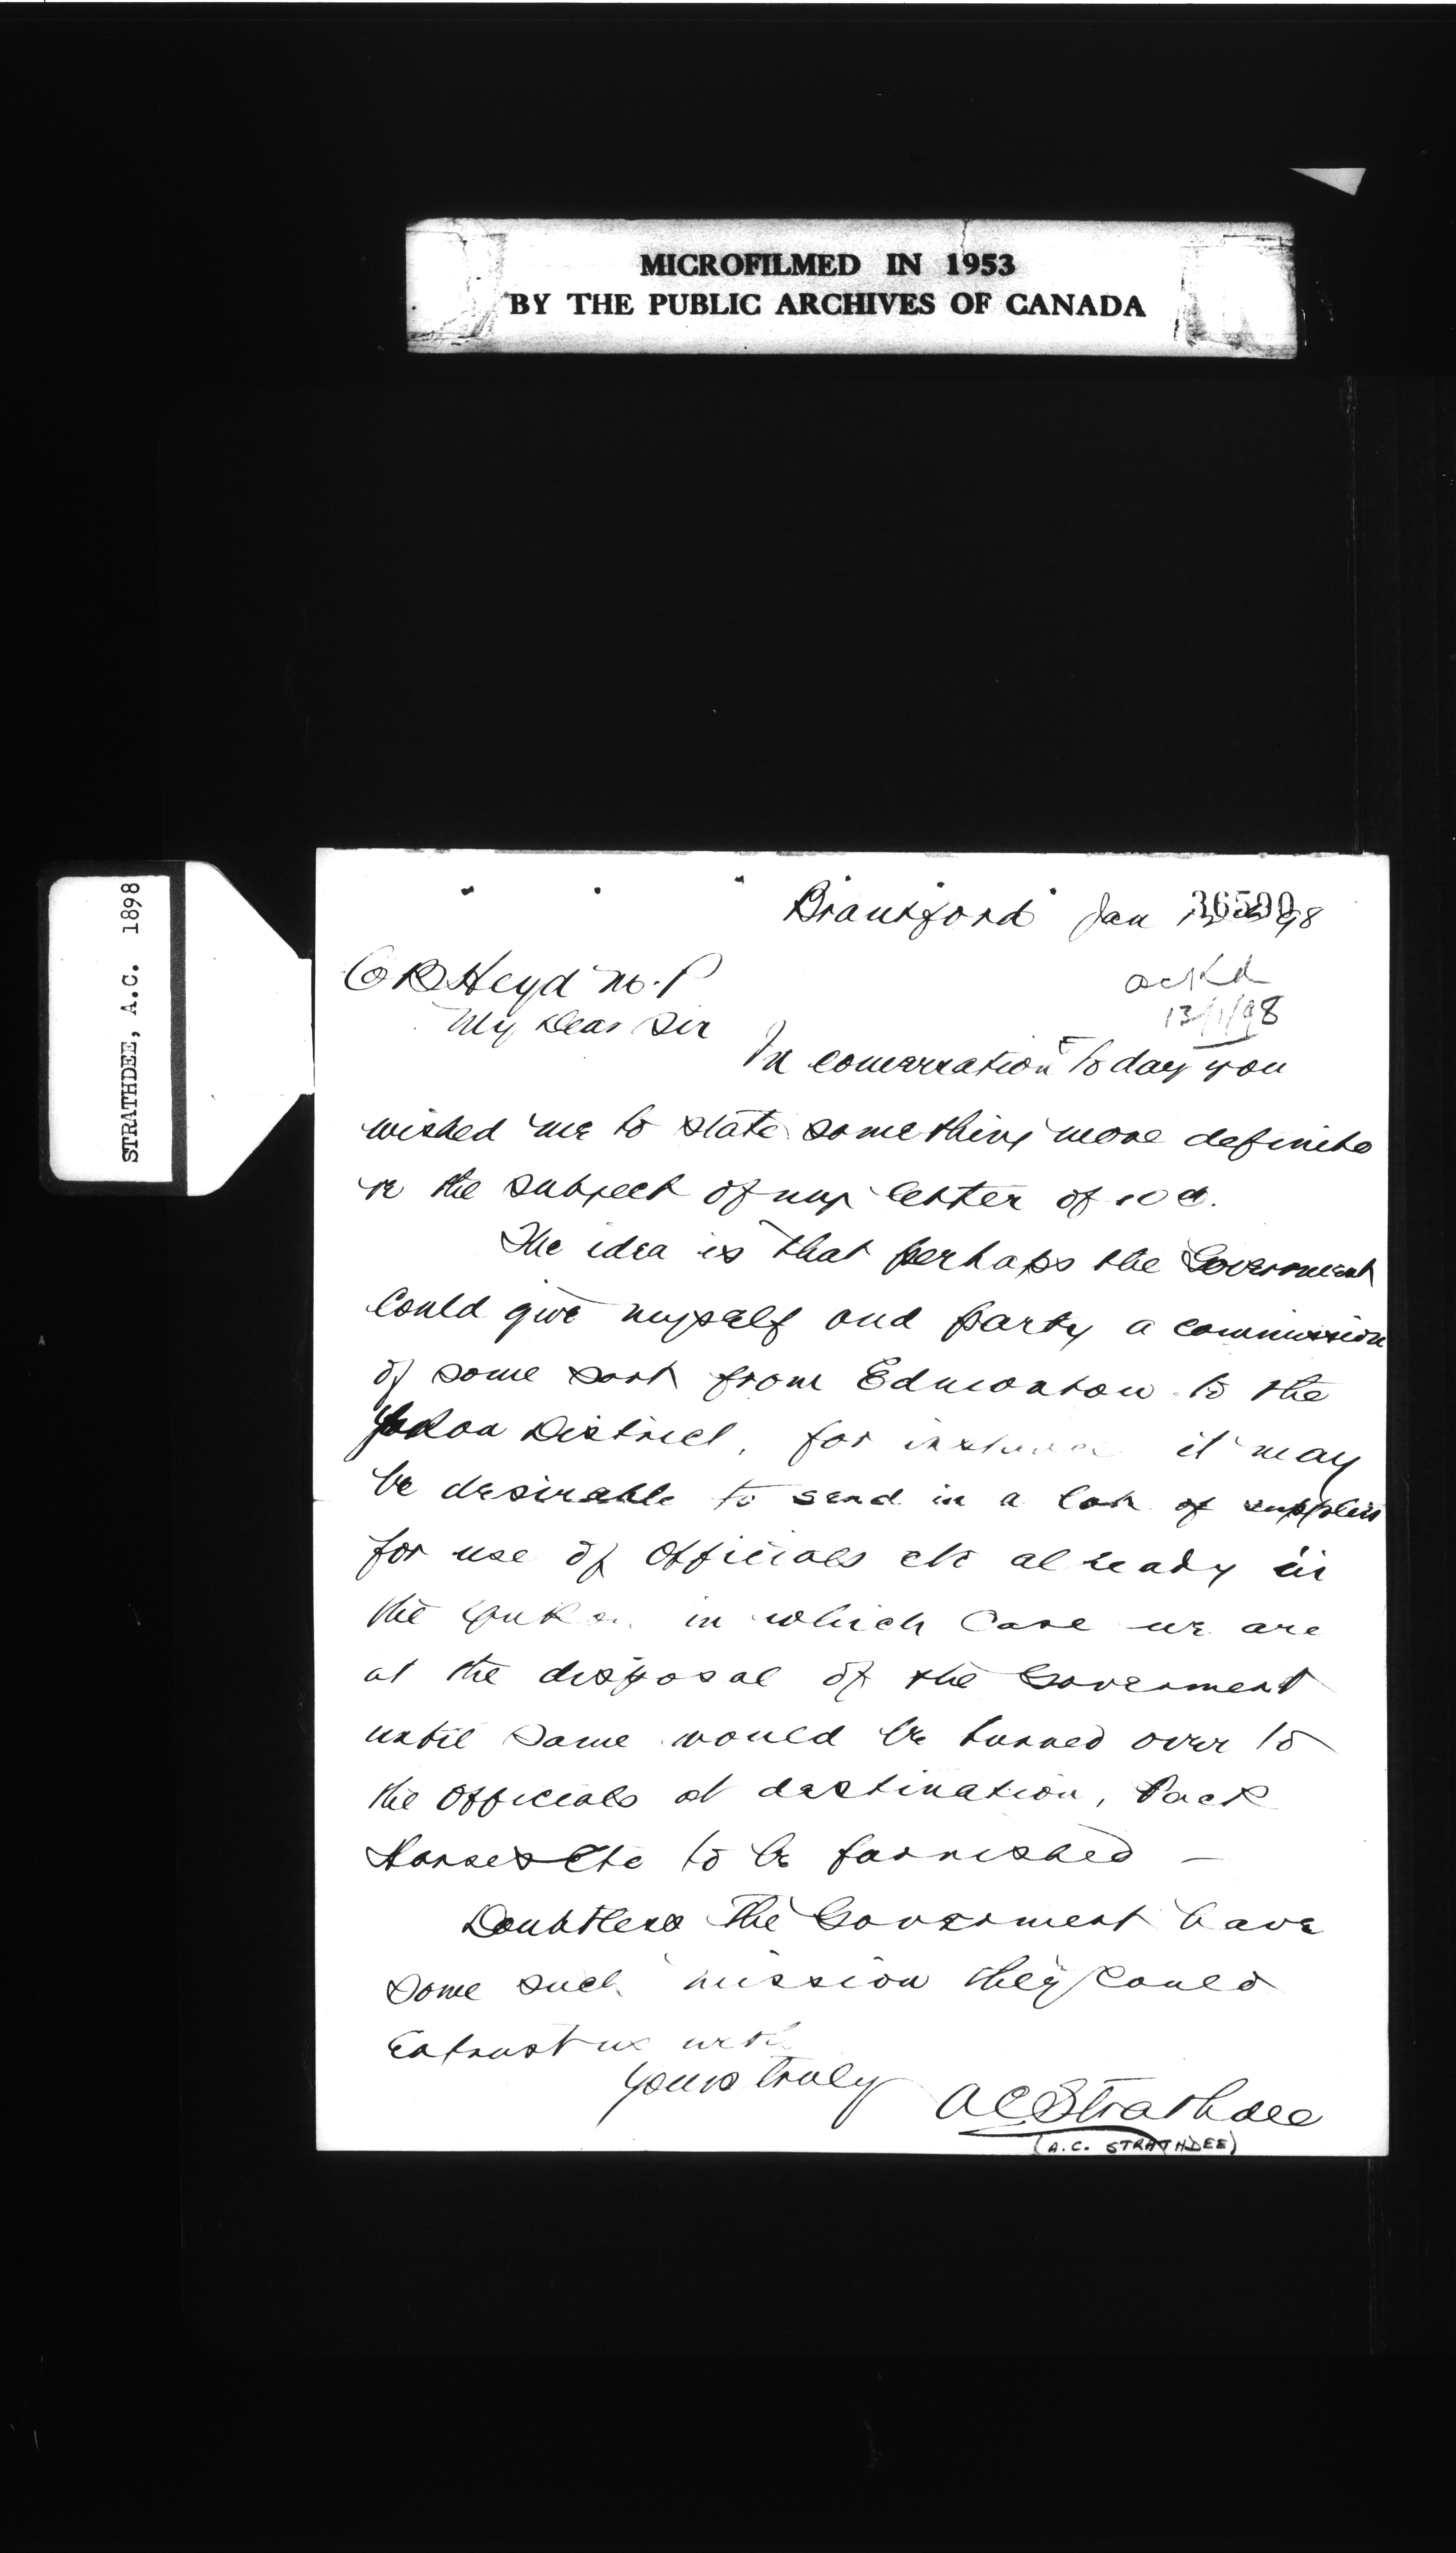 MICROFILMED IN 1953
BY THE PUBLIC ARCHIVES OF CANADA
STRATHDEE, A.C. 1898
36590
Brantford Jan 98
C B Heyd M.P
ackd
13/1/98
My Dear Sir
In conversation to day you
wished me to state something more definite
re the subject of my letter of
The idea is that perhaps the Government
Could give myself and party a commission
of some sort from Edmonton to the
Yukon District, for instance it may
be desirable to send in a lot of supplies
for use of Officials etc already in
the Yukon in which Case we are
at the disposal of the Government
until same would be turned over to
the Officials at destination, Pack
Horses Etc to be furnished —
Doubtless The Government have
some such mission they Could
Entrust us with
Yours truly
A C Strathdee
(A.C. STRATHDEE)